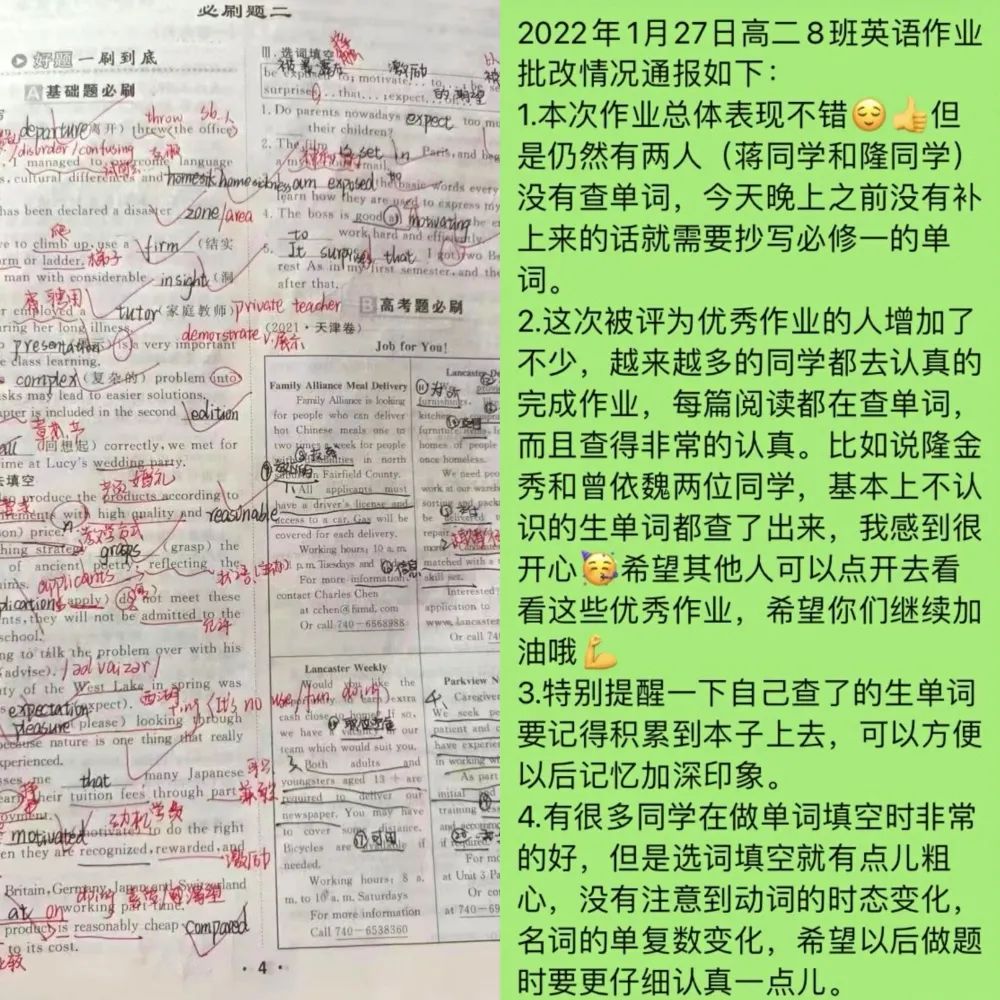 必刷题二
好题 一刷到底
A 基础题必刷
throw sb.
departure(离开) threw the office
/disorder/confusing
managed to overcome language
s, cultural differences and homesick homesickness
has been declared a disaster zone/area
爬
ve to climb up, use a firm (结实
orm or ladder. 梯子
man with considerable insight (洞
聘用
r employed a tutor (家庭教师) private teacher
aring her long illness.
demonstrate v.展示
presentation is a very important
e class learning.
complex (复杂的) problem into
asks may lead to easier solutions.
pter is included in the second edition
all (回想起) correctly, we met for
ime at Lucy's wedding party.
去填空
婚礼
ng produce the products according to
rements with high quality and reasonable
on) price.
教学方式
hing strategy grasps (grasp) the
of ancient poetry, reflecting the
aims.
applicants
plication (apply) do not meet these
nts, they will not be admitted to the
允许
school.
ng to talk the problem over with his
(advise). /ədˈvaizər/
ty of the West Lake in spring was
西湖
expectation (expect).
pleasure (please) looking through
because nature is one thing that really
experienced.
sses me that many Japanese
earn their tuition fees through part
oyment.
动机
motivated (motivate) to do the right
en they are recognized, rewarded, and
激励
Britain, Germany, Japan and Switzerland
doing
at on working part-time.
product is reasonably cheap compared
to its cost.
比较
Ⅲ. 选词填空
激励
be exposed to; motivate... to... be
的期望
surprise... that...; expect...
1. Do parents nowadays expect too m
their children?
2. The film is set in Paris, and beg
am exposed to the basic words every
learn how they are used to express my
4. The boss is good at motivating
to work hard and efficiently
5. It surprises that I got two Be
rest As in my first semester, and the
after that.
B 高考题必刷
(2021·天津卷)
Job for You!
Family Alliance Meal Delivery
Family Alliance is looking
for people who can deliver
hot Chinese meals one to
two times a week for people
with disabilities in north
suburban Fairfield County.
All applicants must
have a driver's license and
access to a car. Gas will be
covered for each delivery.
Working hours: 10 a. m.
p. m. Tuesdays and
For more information
信息
contact Charles Chen
at cchen@famd. com
Or call 740-6568988
Lancaster
为
furnishings.
kitchen
furniture
homes of people
once homeless.
We need peo
work at our wareh
sorting and pack
be delivered
repair
more
matched with a t
skill set.
Interested
application to
www. lancaster
Or call 74
Lancaster Weekly
Would you like the
(It's no use/fun. doing)
opportunity to earn extra
cash close to home? If so,
we have a vacancy in our
职位空缺
team which would suit you.
Both adults and
youngsters aged 13 + are
required to deliver our
newspaper. You may have
to cover some distance.
Bicycles are available if
可用
needed.
Working hours: 8 a.
m. to 10 a. m. Saturdays
For more information
Call 740-6538360
Parkview N
Caregiver
We seek pe
patient and c
have experien
in working w
As part
initial
training
and accommo
if required.
For mo
at Unit 3 Pa
Or co
at 740-69
·4·
2022年1月27日高二8班英语作业
批改情况通报如下：
1.本次作业总体表现不错😌👍但
是仍然有两人（蒋同学和隆同学）
没有查单词，今天晚上之前没有补
上来的话就需要抄写必修一的单
词。
2.这次被评为优秀作业的人增加了
不少，越来越多的同学都去认真的
完成作业，每篇阅读都在查单词，
而且查得非常的认真。比如说隆金
秀和曾依魏两位同学，基本上不认
识的生单词都查了出来，我感到很
开心🥳希望其他人可以点开去看
看这些优秀作业，希望你们继续加
油哦💪
3.特别提醒一下自己查了的生单词
要记得积累到本子上去，可以方便
以后记忆加深印象。
4.有很多同学在做单词填空时非常
的好，但是选词填空就有点儿粗
心，没有注意到动词的时态变化，
名词的单复数变化，希望以后做题
时要更仔细认真一点儿。